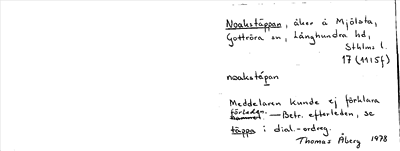 Noakstäppan, åker å Mjölsta,
Gottröra sn, Långhundra hd,
Sthlms l.
17 (1115f)
noakstápan
Meddelaren kunde ej förklara
förleden.
hamnet. — Betr. efterleden, se
täppa i dial.-ordreg.
Thomas Åberg 1978